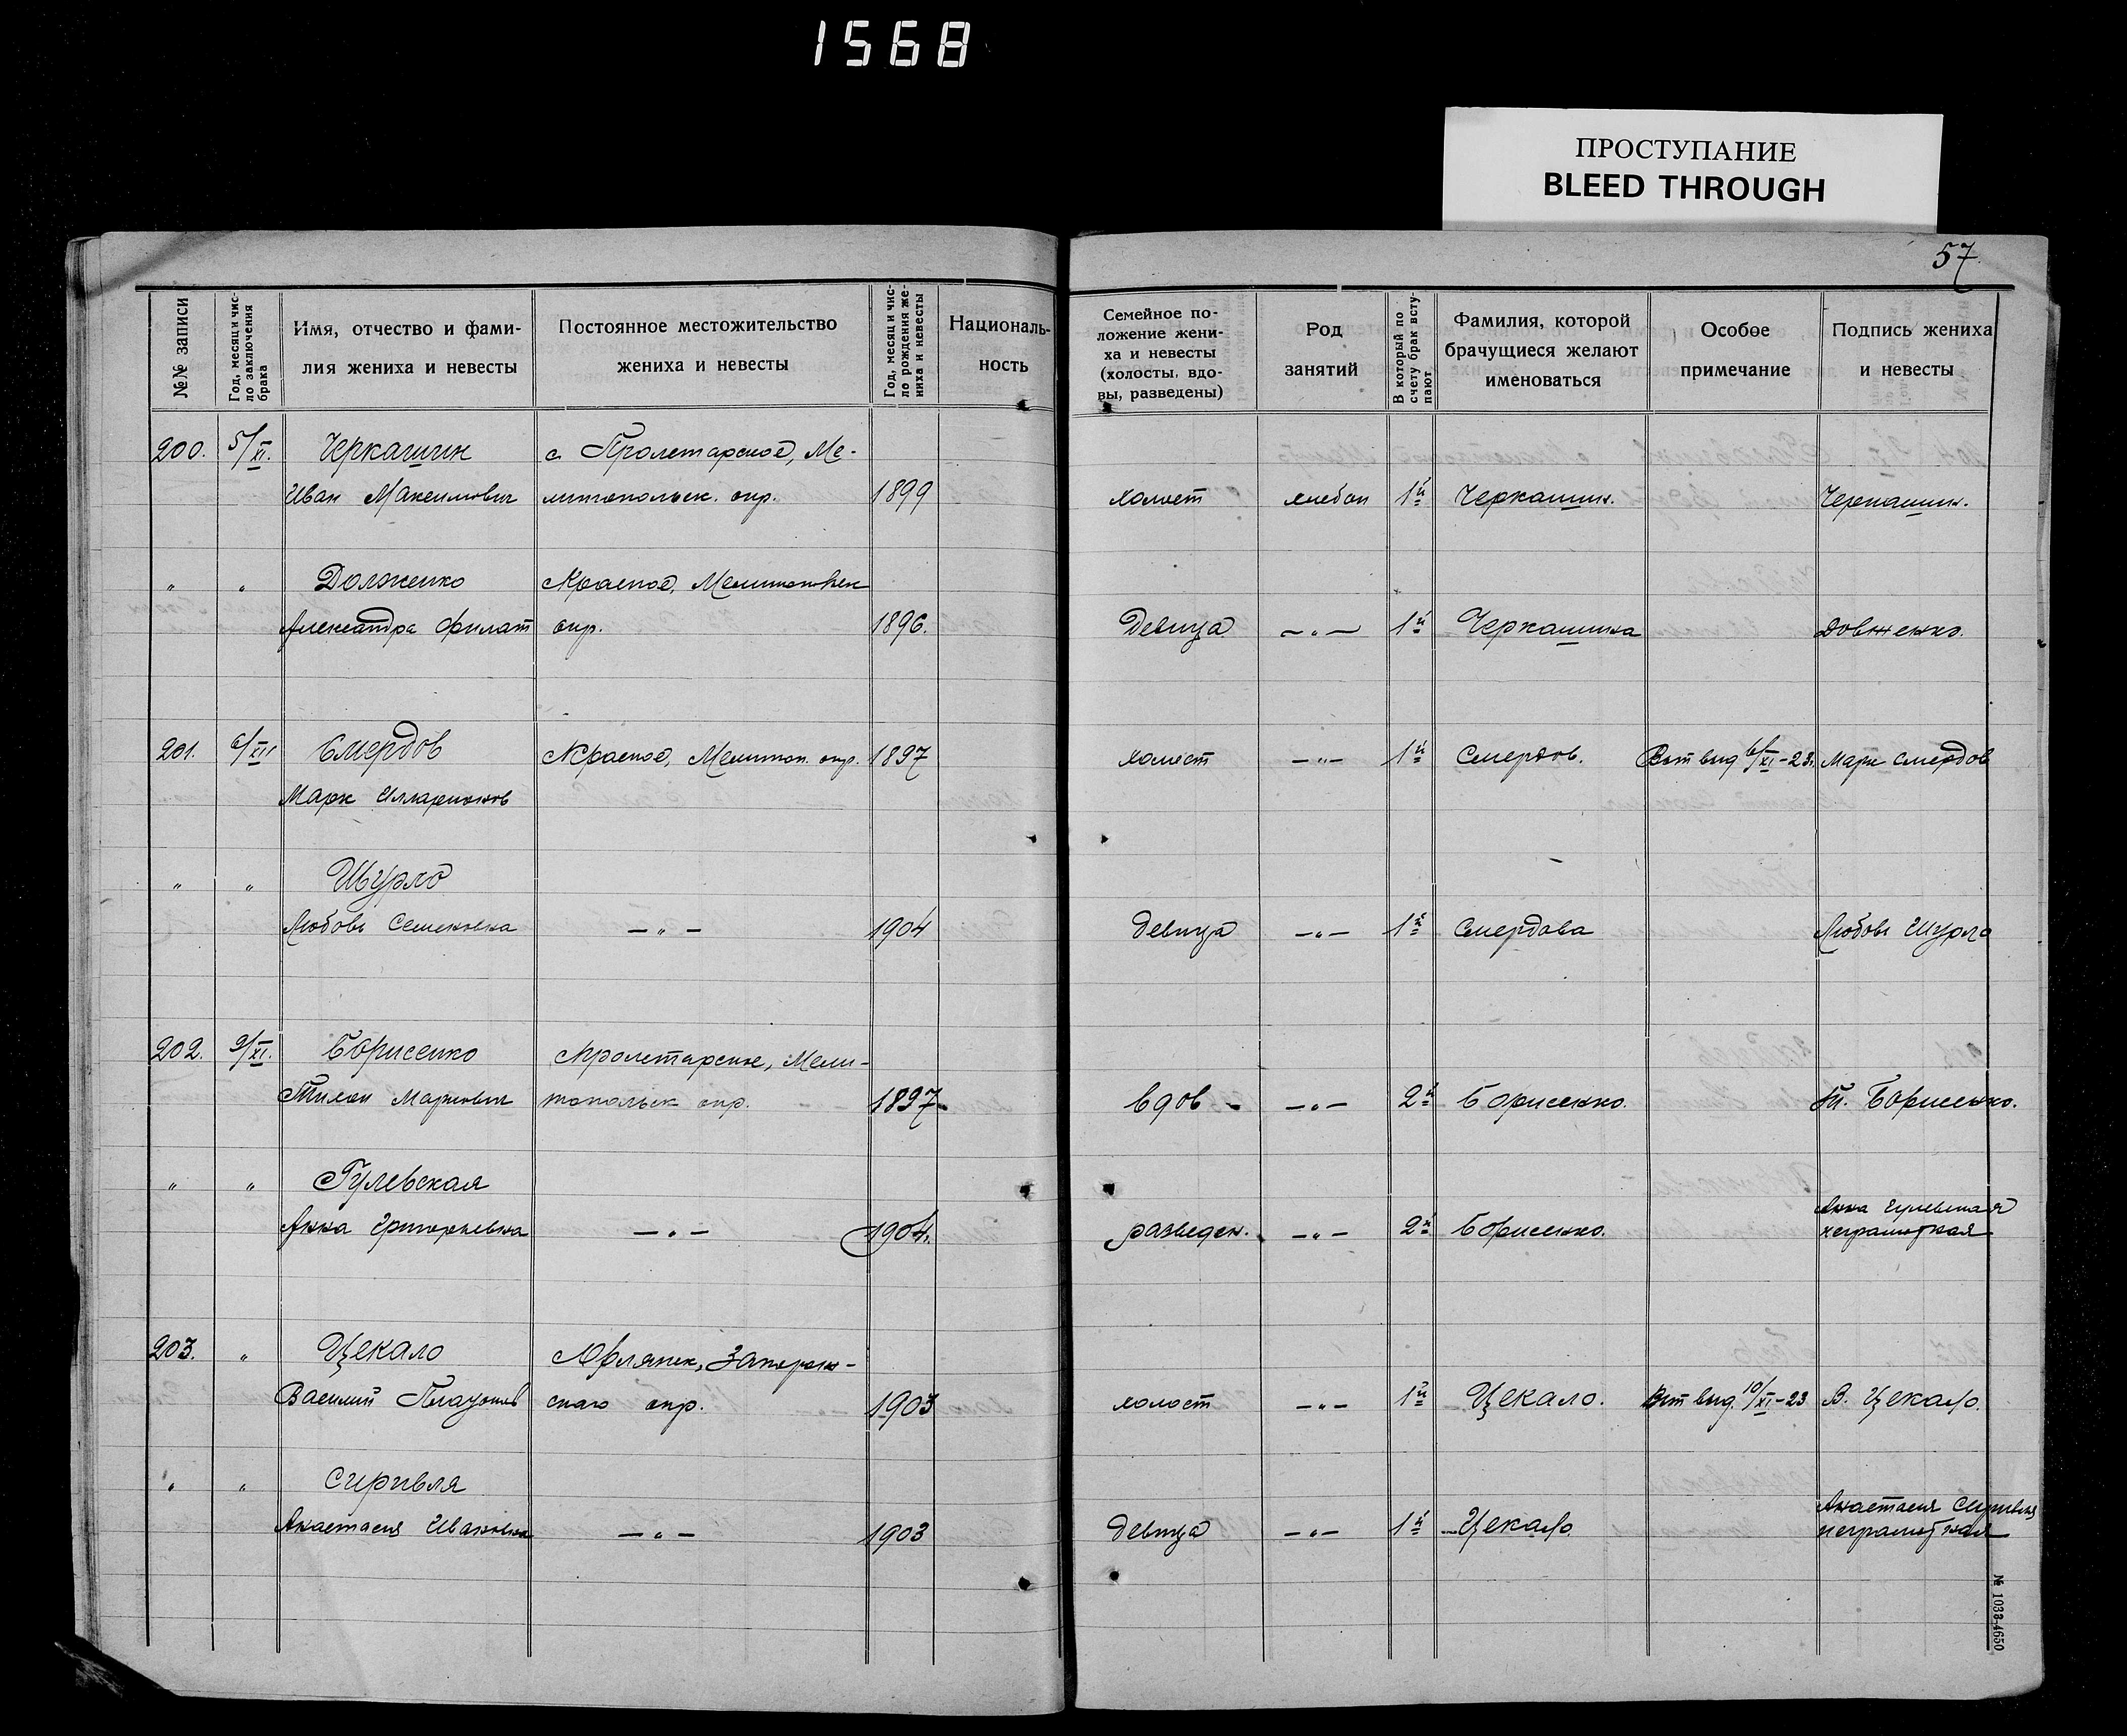 1568
ПРОСТУПАНИЕ
BLEED THROUGH
57.
№№ записи
Год, месяц и чис-
ло заключения
брака
Имя, отчество и фами-
лия жениха и невесты
Постоянное местожительство
жениха и невесты
Год, месяц и чис-
ло рождения же-
ниха и невесты
Националь-
ность
Семейное по-
ложение жени-
ха и невесты
(холосты, вдо-
вы, разведены)
Род
занятий
В который по
счету брак всту-
пают
Фамилия, которой
брачущиеся желают
именоваться
Особое
примечание
Подпись жениха
и невесты
200. 5/XI. Черкашин с. Пролетарское, Ме-
Иван Максимович литопольск. окр. 1899 холост хлебоп 1й Черкашин. Черкашин.
" " Долженко Красное, Мелитопольск
Александра Филат окр. 1896. Девица —"— 1й Черкашина Довженко.
201. 6/XII Смердов Красное, Мелитоп. окр. 1897 холост —"— 1й Смердов. Вып вид 6/XI-23. Марк Смердов
Марк Илларионов
" " Шурло
Любовь Семеновна —"— 1904 Девица —"— 1й Смердова Любовь Шурло
202. 9/XI. Борисенко Пролетарское, Мели-
Тихон Маркович топольск окр. 1897 вдов —"— 2й Борисенко. Т. Борисенко.
" " Гулевская
Анна Григорьевна —"— 1904. разведен. —"— 2й Борисенко. Анна Гулевская
неграмотная
203. " Цекало Запорож-
Василий ского окр. 1903 холост —"— 1й Цекало. Вып вид. 10/XI-23 В. Цекало.
" " Сиривля
Анастасия Ивановна —"— 1903 Девица —"— 1й Цекало Анастасия Сиривля
неграмотная
№ 1033-4650